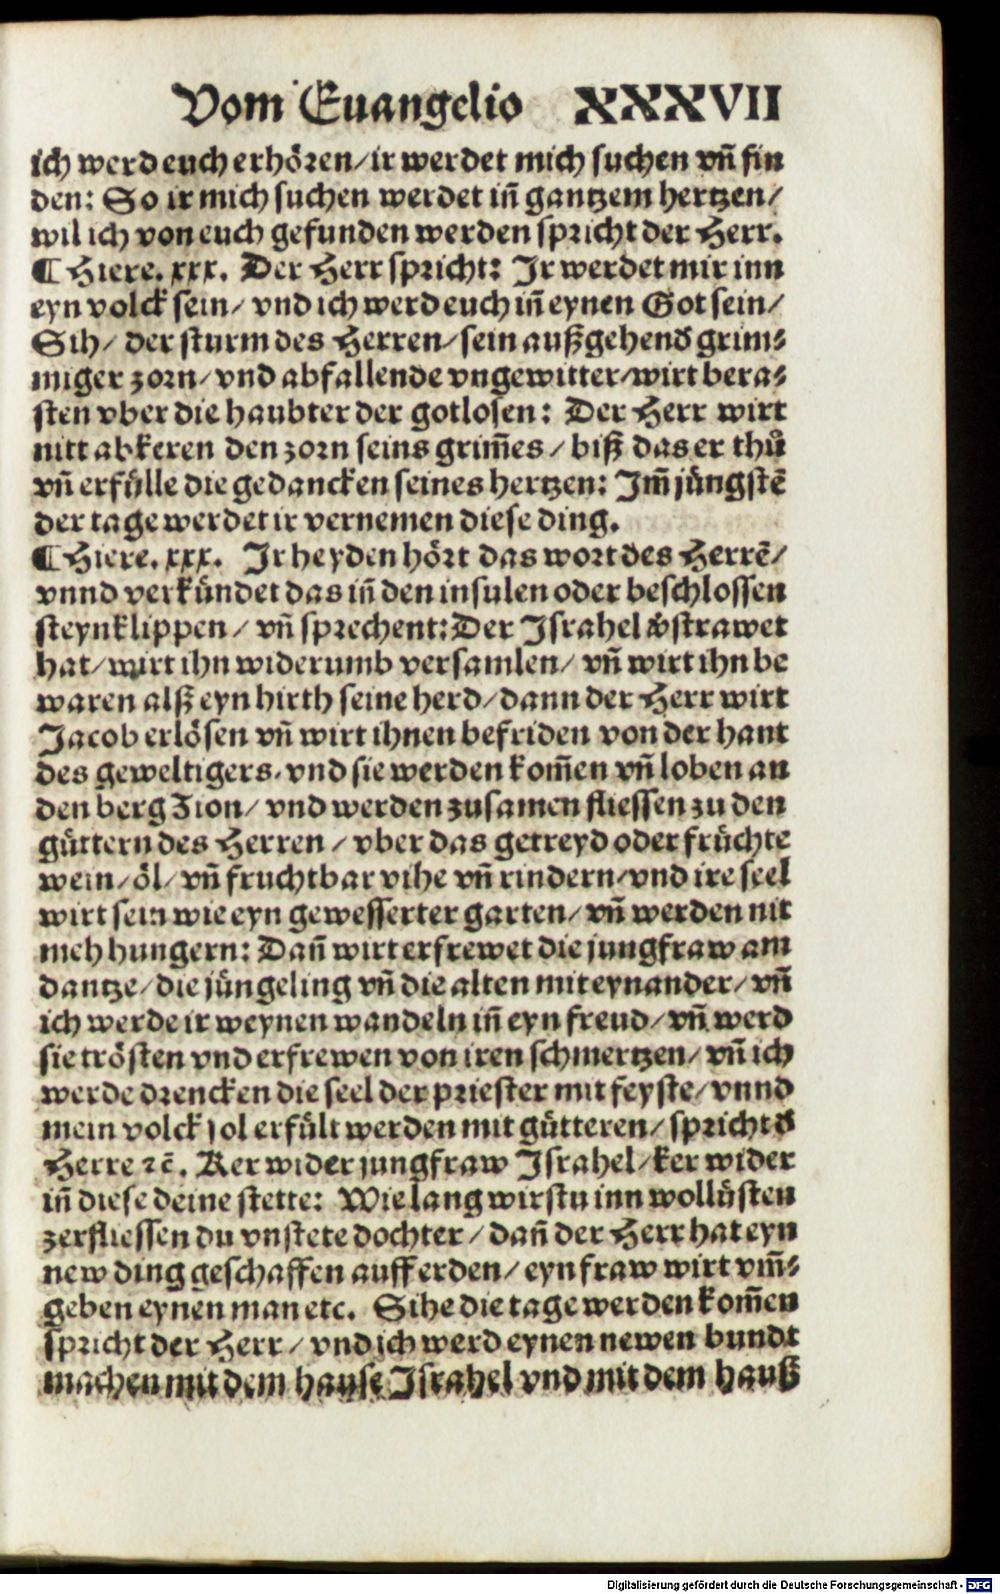 Vom Euangelio XXXVII
ich werd euch erhören/ ir werdet mich suchen vñ fin
den: So ir mich suchen werdet iñ gantzem hertzen/
wil ich von euch gefunden werden spricht der Herr.
¶ Hiere. xxx. Der Herr spricht: Ir werdet mir inn
eyn volck sein/ vnd ich werd euch iñ eynen Got sein/
Sih/ der sturm des Herren/ sein außgehend grim⸗
miger zorn/ vnd abfallende vngewitter/ wirt bera⸗
sten vber die haubter der gotlosen: Der Herr wirt
nitt abkeren den zorn seins grim̃es / biß das er thuͦ
vñ erfülle die gedancken seines hertzen: Im̃ jüngstẽ
der tage werdet ir vernemen diese ding.
¶ Hiere. xxx. Ir heyden hört das wort des Herrẽ/
vnnd verkündet das iñ den insulen oder beschlossen
steynklippen/ vñ sprechent: Der Israhel v̓strawet
hat/ wirt ihn widerumb versamlen/ vñ wirt ihn be
waren alß eyn hirth seine herd/ dann der Herr wirt
Jacob erlösen vñ wirt ihnen befriden von der hant
des geweltigers. vnd sie werden kom̃en vñ loben an
den berg Zion/ vnd werden zusamen fliessen zu den
güttern des Herren / vber das getreyd oder früchte
wein/ öl/ vñ fruchtbar vihe vñ rindern/ vnd ire seel
wirt sein wie eyn gewesserter garten/ vñ werden nit
meh hungern: Dañ wirt erfrewet die jungfraw am
dantze/ die jüngeling vñ die alten mit eynander/ vñ
ich werde ir weynen wandeln iñ eyn freud/ vñ werd
sie trösten vnd erfrewen von iren schmertzen/ vñ ich
werde drencken die seel der priester mit feyste/ vnnd
mein volck sol erfült werden mit gütteren/ spricht d̓
Herre ⁊c̃. Ker wider jungfraw Israhel/ ker wider
iñ diese deine stette: Wie lang wirstu inn wollüsten
zerfliessen du vnstete dochter/ dañ der Herr hat eyn
new ding geschaffen auff erden/ eyn fraw wirt vm̃⸗
geben eynen man etc. Sihe die tage werden kom̃en
spricht der Herr/ vnd ich werd eynen newen bundt
machen mit dem hause Israhel vnd mit dem hauß
Digitalisierung gefördert durch die Deutsche Forschungsgemeinschaft - DFG